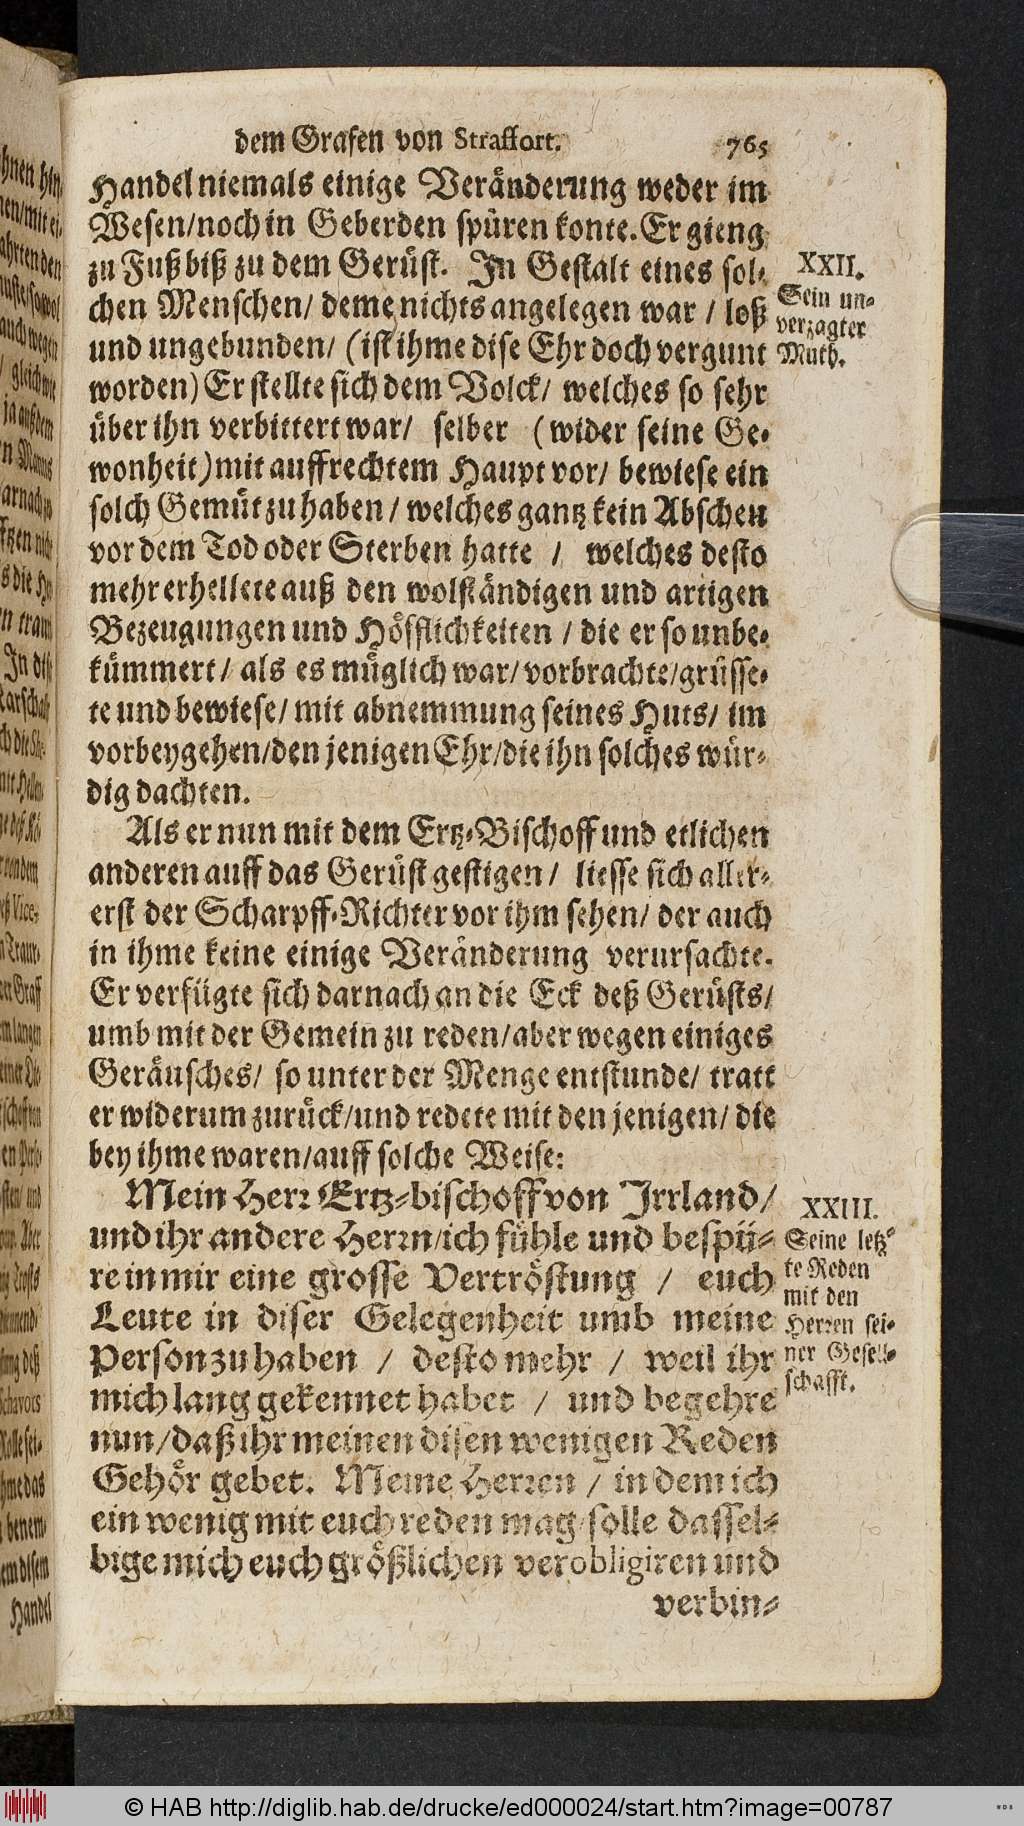 dem Grafen von Straffort. 765
Handel niemals einige Veränderung weder im
Wesen/noch in Geberden spüren konte. Er gieng
zu Fuß biß zu dem Gerüst. In Gestalt eines sol-
chen Menschen/ deme nichts angelegen war / loß
und ungebunden/ (ist ihme dise Ehr doch vergunt
worden) Er stellte sich dem Volck/ welches so sehr
über ihn verbittert war/ selber (wider seine Ge-
wonheit) mit auffrechtem Haupt vor/ bewiese ein
solch Gemüt zu haben / welches gantz kein Abscheu
vor dem Tod oder Sterben hatte / welches desto
mehr erhellete auß den wolständigen und artigen
Bezeugungen und Höfflichkeiten / die er so unbe-
kümmert / als es müglich war/ vorbrachte/grüsse-
te und bewiese/ mit abnemmung seines Huts/ im
vorbeygehen/den jenigen Ehr/die ihn solches wür-
dig dachten.
XXII.
Sein un-
verzagter
Muth.
Als er nun mit dem Ertz-Bischoff und etlichen
anderen auff das Gerüst gestigen / liesse sich aller-
erst der Scharpff-Richter vor ihm sehen/ der auch
in ihme keine einige Veränderung verursachte.
Er verfügte sich darnach an die Eck deß Gerüsts/
umb mit der Gemein zu reden/aber wegen einiges
Geräusches/ so unter der Menge entstunde/ tratt
er widerum zurück/und redete mit den jenigen/ die
bey ihme waren/auff solche Weise:
Mein Herr Ertz-bischoff von Irrland/
und ihr andere Herrn/ich fühle und bespü-
re in mir eine grosse Vertröstung / euch
Leute in diser Gelegenheit umb meine
Person zu haben / desto mehr / weil ihr
mich lang gekennet habet / und begehre
nun/daß ihr meinen disen wenigen Reden
Gehör gebet. Meine Herren / in dem ich
ein wenig mit euch reden mag/solle dassel-
bige mich euch größlichen verobligiren und
verbin-
XXIII.
Seine letz-
te Reden
mit den
Herren sei-
ner Gesell-
schafft.
© HAB http://diglib.hab.de/drucke/ed000024/start.htm?image=00787